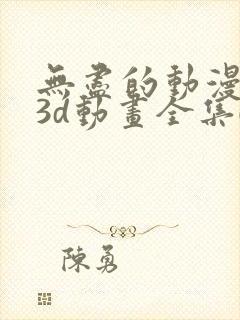 無盡的動漫
3d動畫全集
陳勇